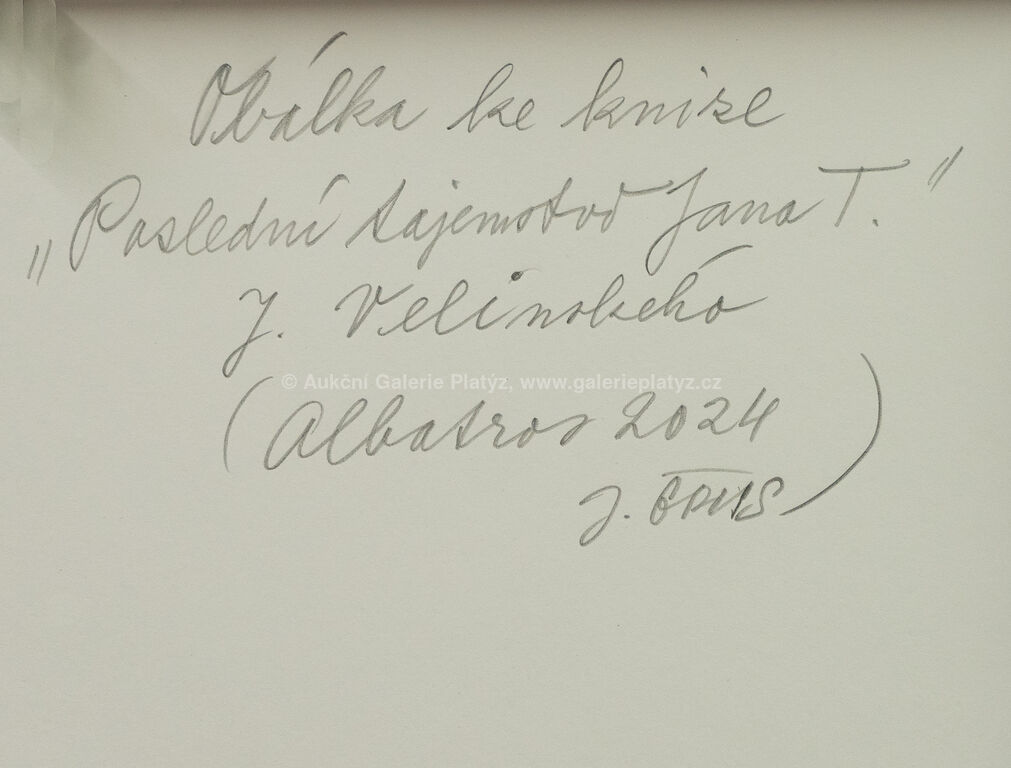 Obálka ke knize
„Poslední tajemství Jana T."
J. Velinského
© Aukční Galerie Platýz, www.galerieplatyz.cz
(Albatros 2024)
J.